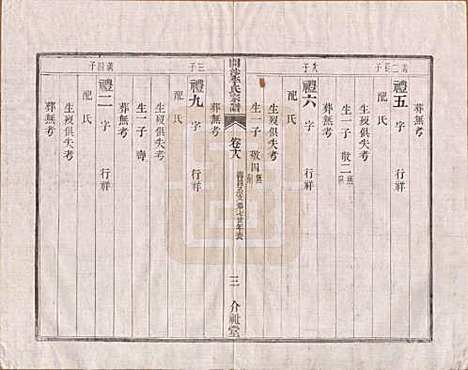 禮五 字 行祥
配氏
生歿俱失考
生一子 敬二
葬無考
禮六 字 行祥
配氏
生歿俱失考
生一子 敬四
葬無考
氏宗譜
卷
三 介祉堂
三子
禮九 字 行祥
配氏
生歿俱失考
生一子 壽
葬無考
四子
禮二 字 行祥
配氏
生歿俱失考
葬無考